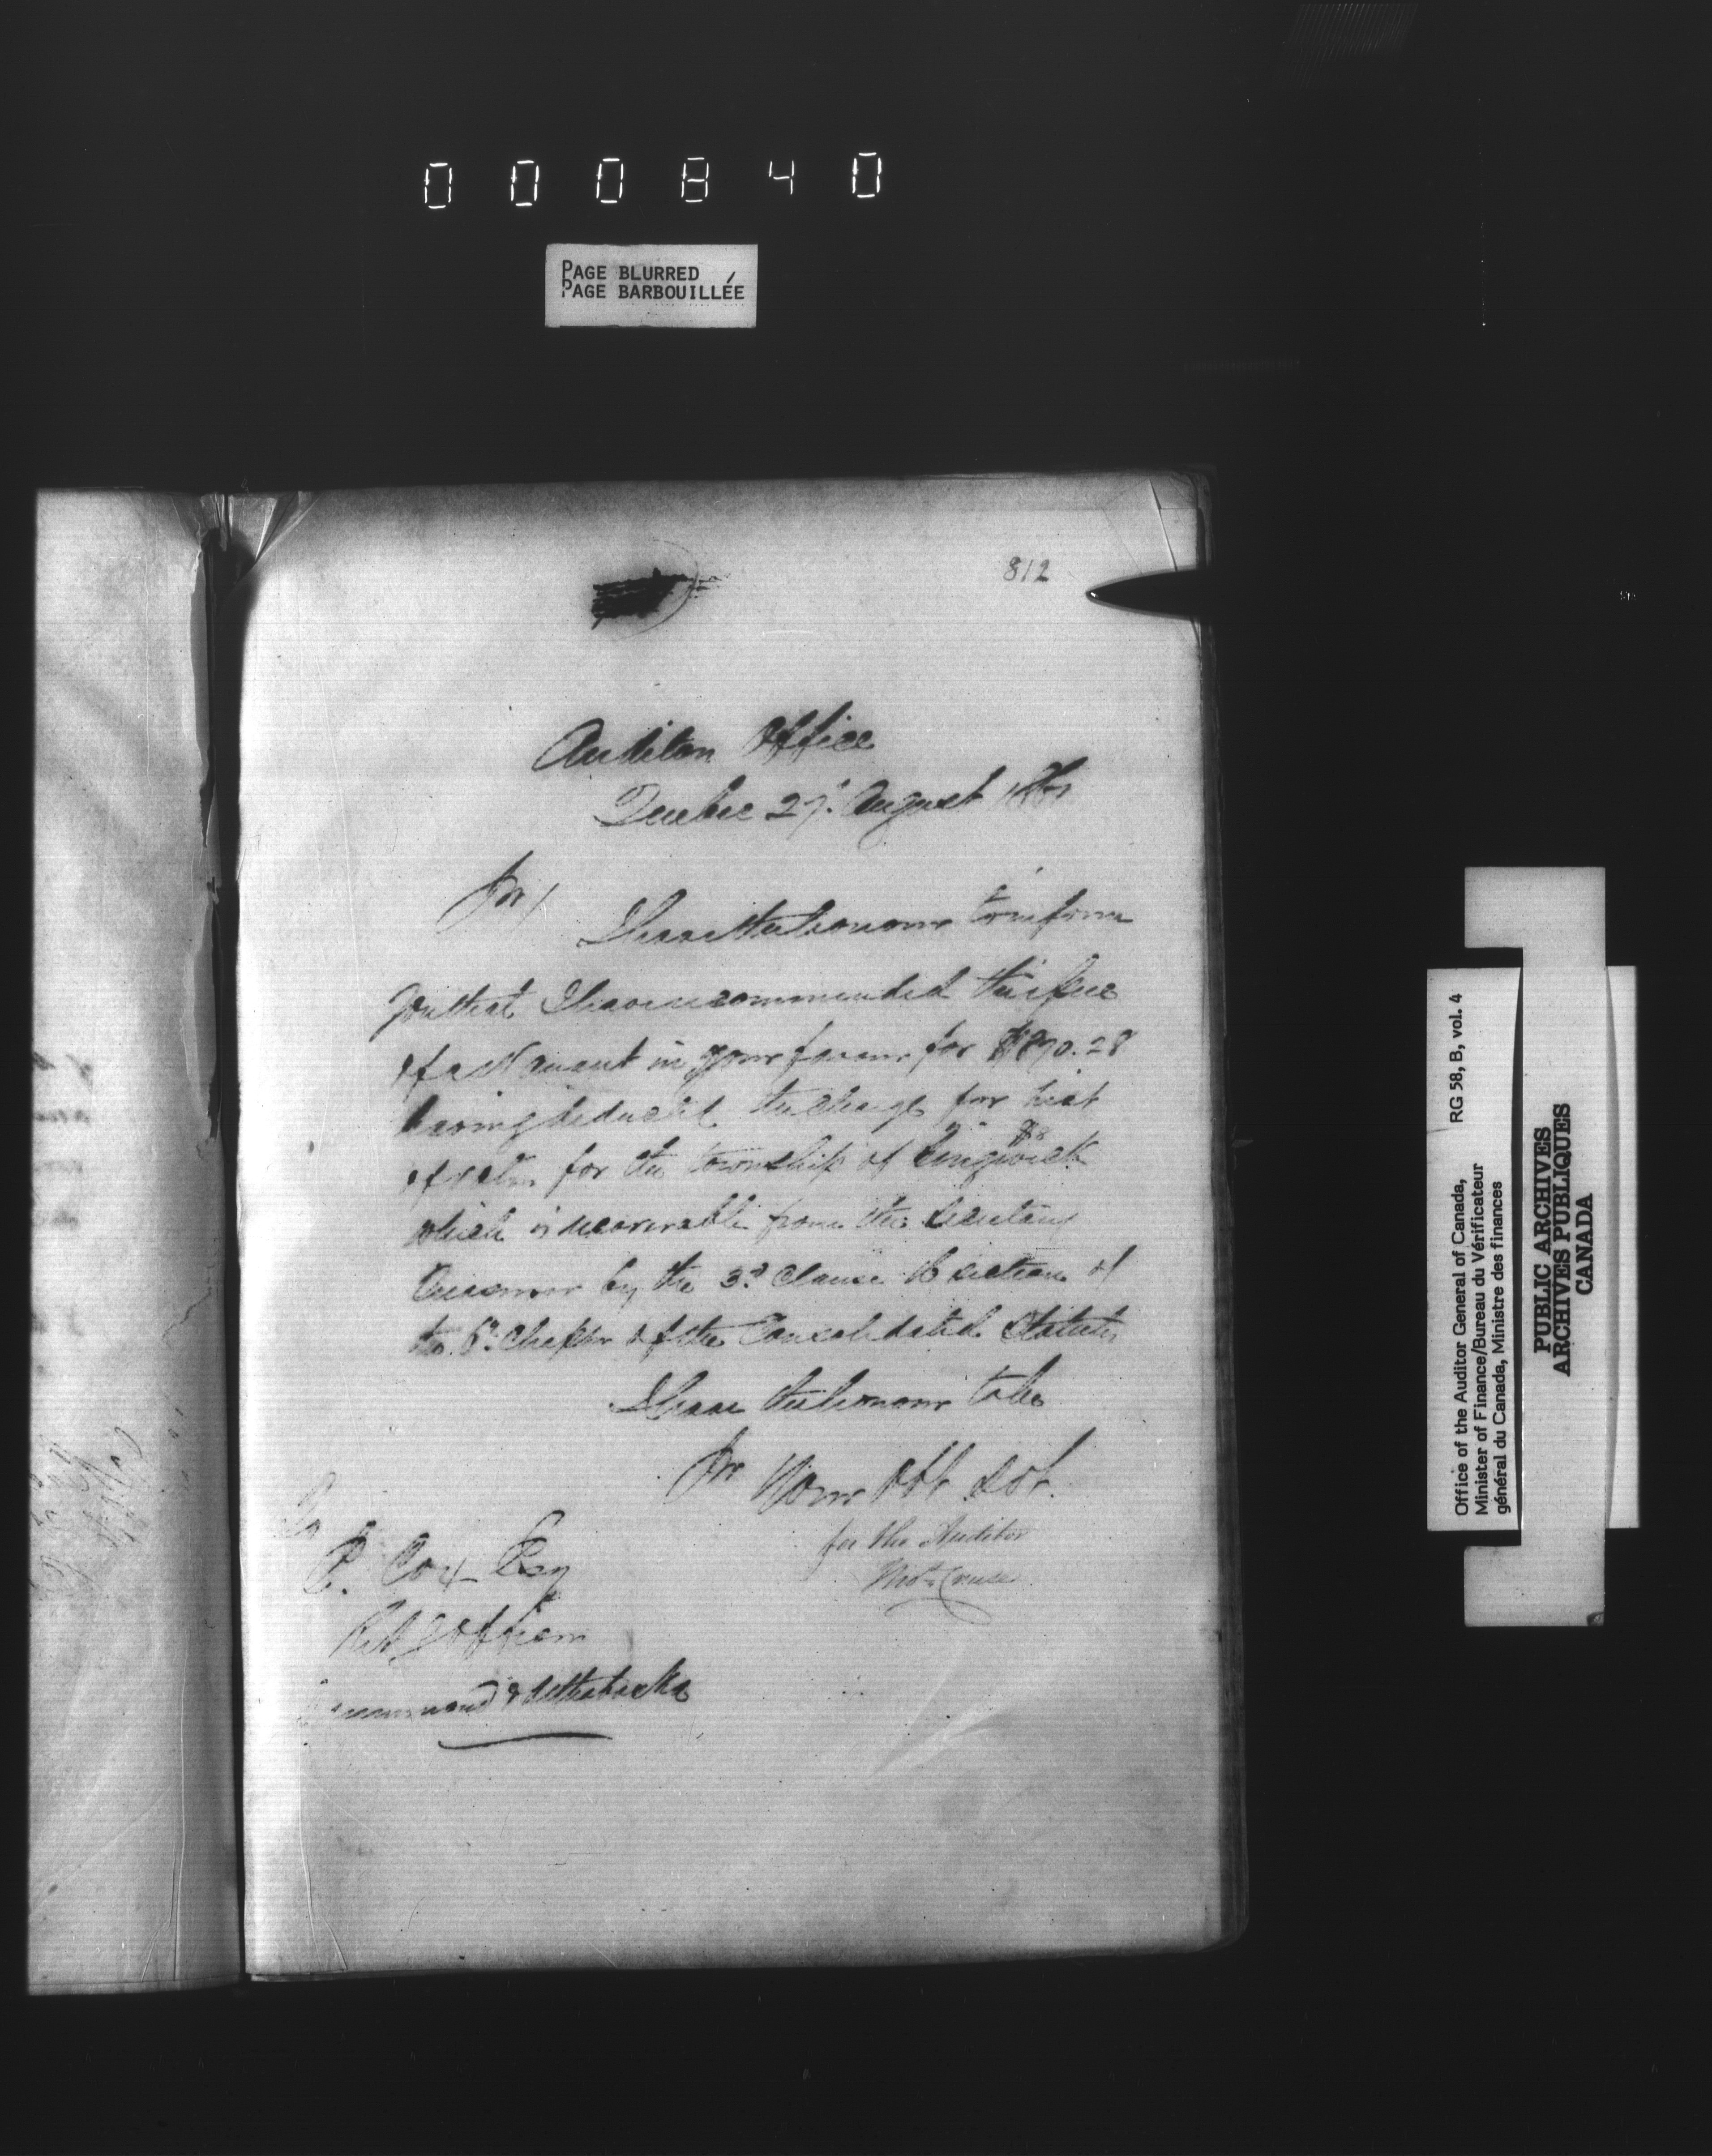 000840
PAGE BLURRED
PAGE BARBOUILLÉE
812
Auditors Office
Quebec 27th August 1861
Sir/
I have the honour to inform
you that I have recommended the issue
of a Warrant in your favour for $890.28
having deducted the charge for list
of for the township of Lingwick $8
which is recoverable from the Secretary
Treasurer by the 3d Clause 16 section of
the 6th Chapter of the Consolidated Statutes
I have the honour to be
Sir Your Obt Sert.
for the Auditor
To
C. Cox Esq
Retg Officer
Drummond & Arthabaska
Office of the Auditor General of Canada,
Minister of Finance/Bureau du Vérificateur
général du Canada, Ministre des finances
RG 58, B, vol. 4
PUBLIC ARCHIVES
ARCHIVES PUBLIQUES
CANADA